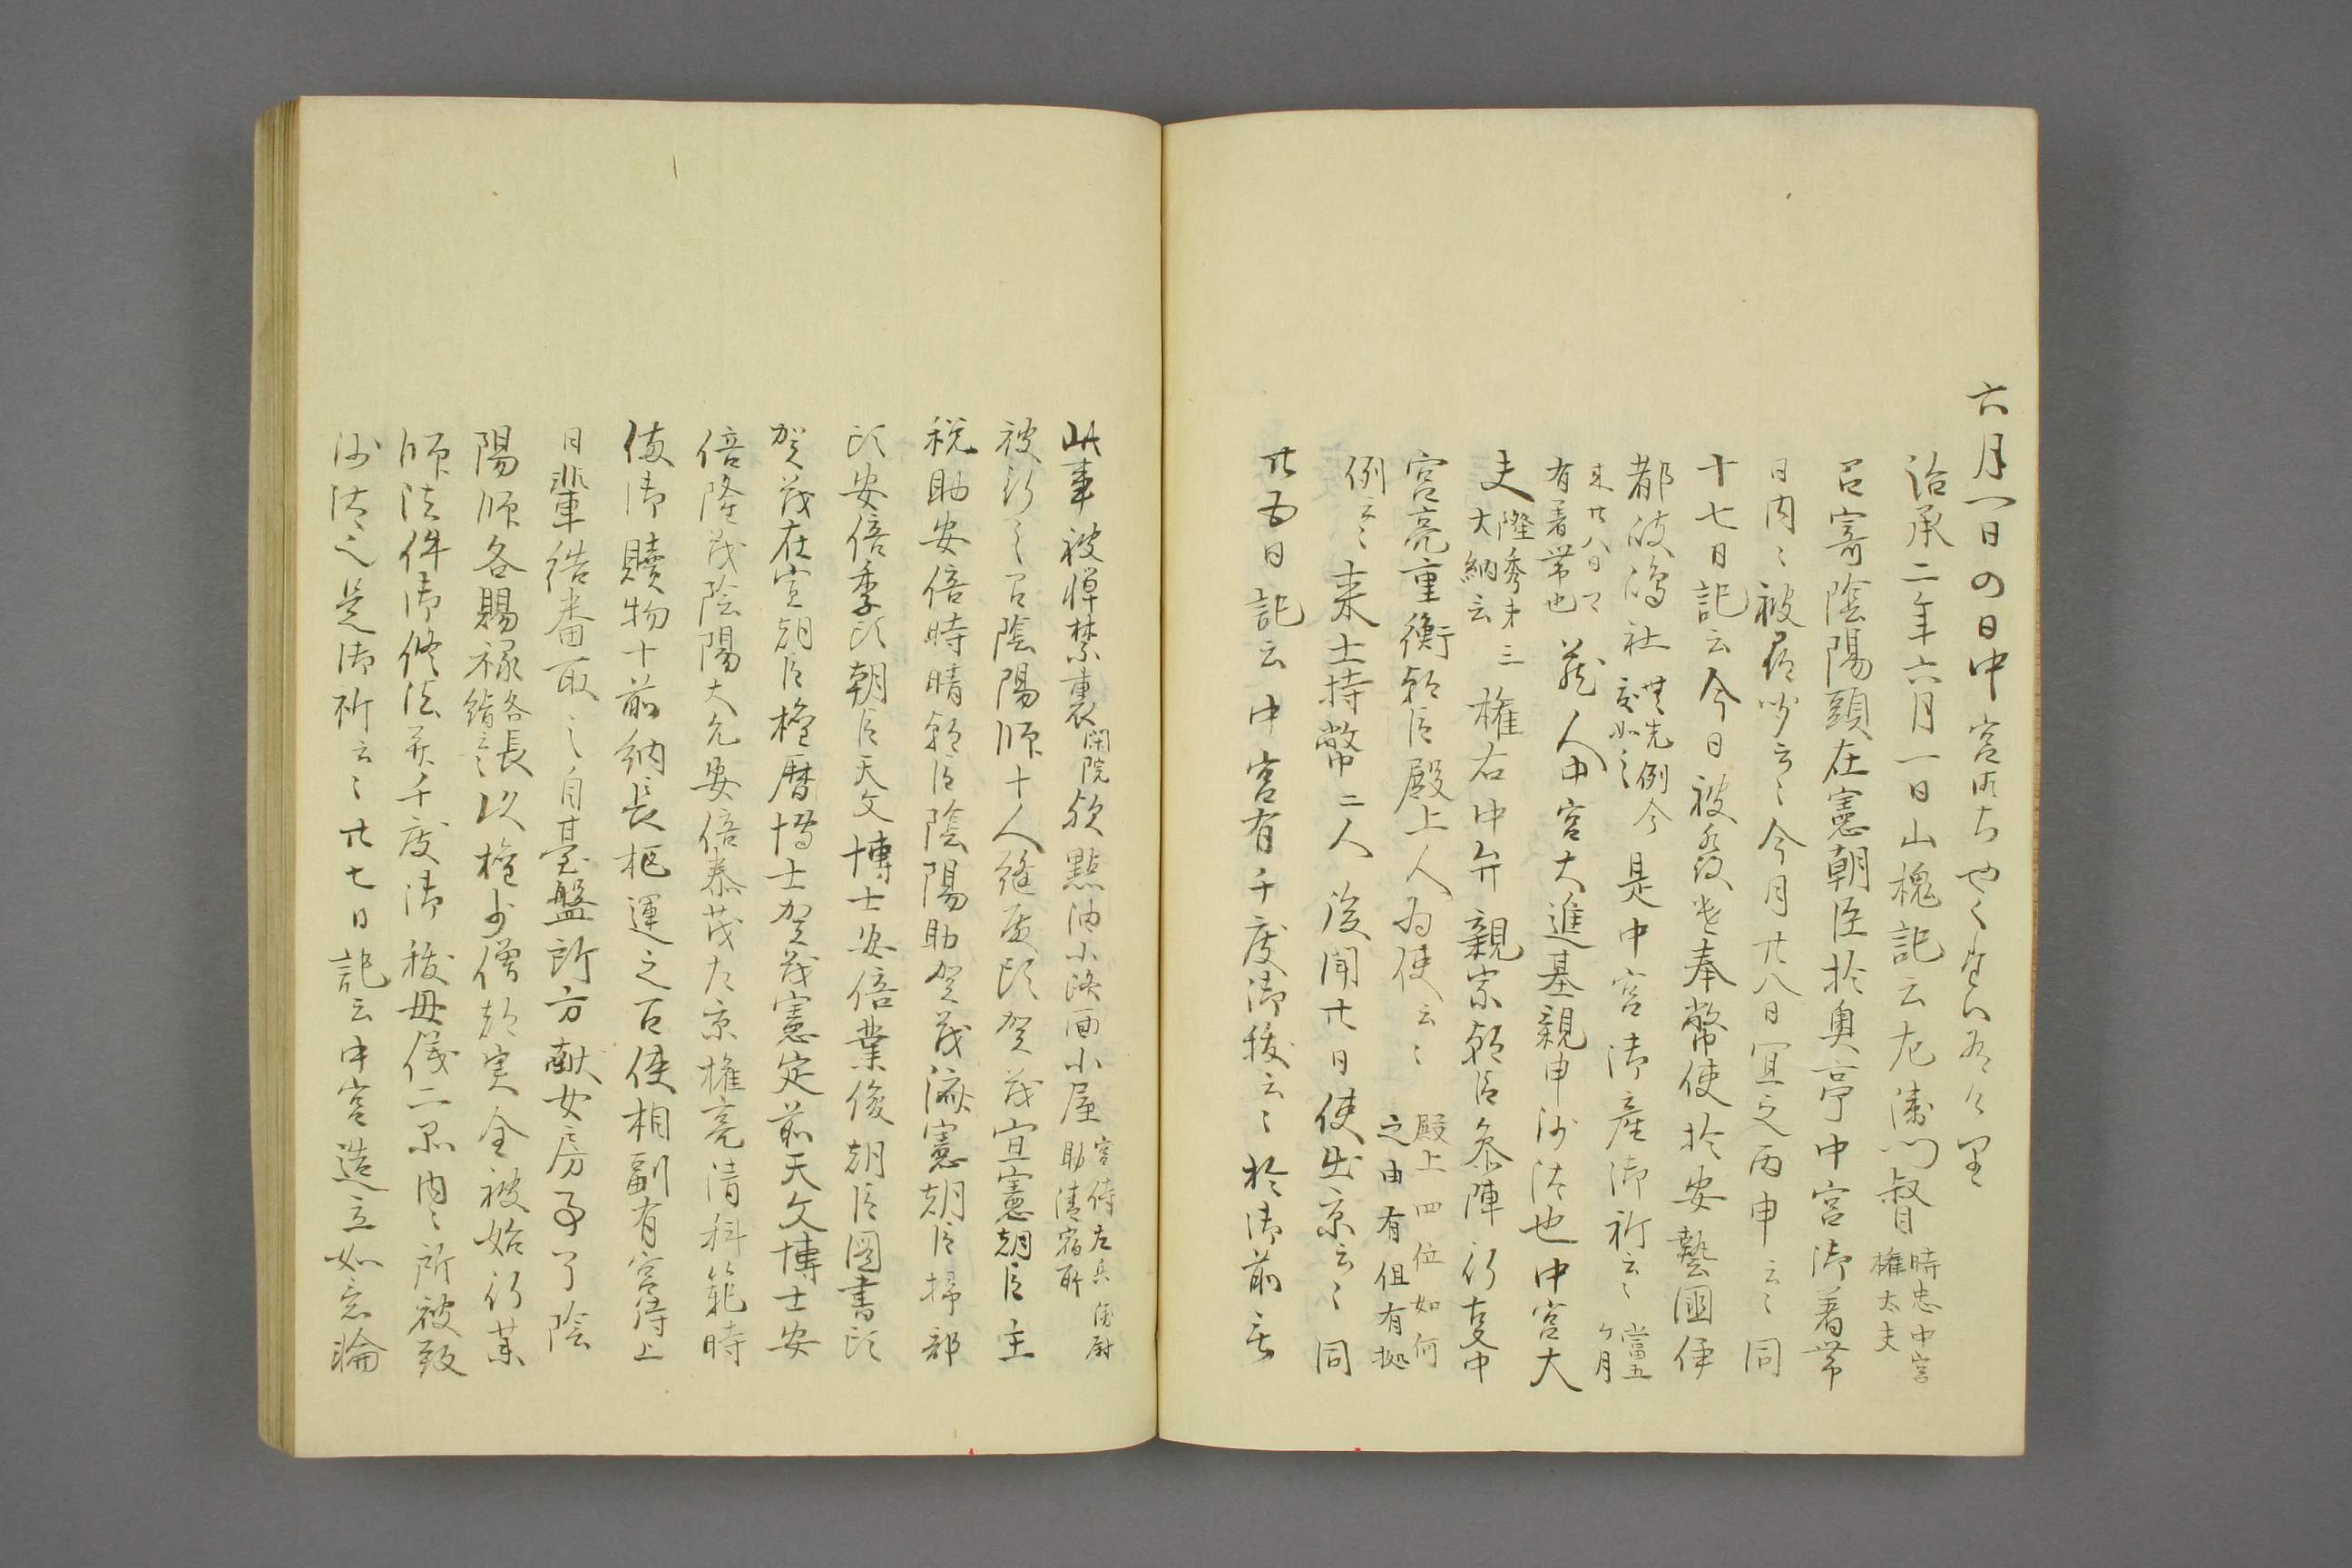 六月一日の日中宮
治承二年六月一日山槐記云左衛門督時忠中宮権大夫
召寄陰陽頭在憲朝臣於奥亭中宮御着帯
日内々被尋問云々今月廿八日宜之丙申云々同
十七日記云今日被発遣奉幣使於安藝國伊
都岐嶋社無先例今度如之是中宮御産御祈云々當五ケ月
来廿八日可有着帯也蔵人中宮大進基親申沙汰也中宮大
夫隆季大納言三権右中弁親宗朝臣参陣行事中
宮亮重衡朝臣殿上人為使云々殿上四位如何之由有但有拠
例云々来士持幣二人後聞廿日使出京云々同
廿五日記云中宮有千度御祓云々於御前
此事被憚禁裏閑院欤點油小路面小屋宮侍左兵衛尉助清宿所
被行之召陰陽師十人縫殿頭賀茂宣憲朝臣主
税助安倍時晴朝臣陰陽助賀茂濟憲朝臣掃部
頭安倍季弘朝臣天文博士安倍業俊朝臣圖書頭
賀茂在宣朝臣権暦博士賀茂憲定前天文博士安
倍隆茂陰陽大允安倍泰茂左京権亮清科範時
儲御贖物十前納長柩運之召使相副有宮侍上
日輩結番取之自臺盤所方献女房事了陰
陽師各賜禄各長絹云々次権少僧都実全被始行薬
師法件御修法并千度御祓毋儀二品内々所被致
沙汰之是御祈云々廿七日記云中宮造立如意輪